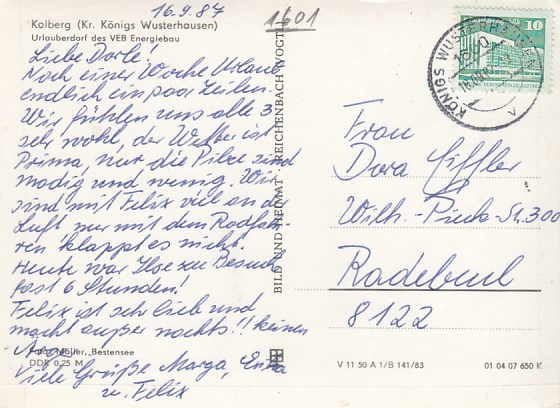 16.9.87
1601
Kolberg (Kr. Königs Wusterhausen)
Urlauberdorf des VEB Energiebau
Liebe Dorle!
Noch einer Woche Urlaub
endlich ein paar Zeilen.
Wir fühlen uns alle 3
sehr wohl, der Wetter ist
Prima, nur die Pilze sind
madig und wenig. Wir
sind mit Felix viel an der
Luft nur mit dem Radfah-
ren klappt es nicht.
Heute war Ilse zu Besuch,
fast 6 Stunden!
Felix ist sehr lieb und
macht außer nachts!! keinen
Foto: Müller, Bestensee
DDR 0,25 M
Viele Grüße Marga,
u. Felix
BILD UND HEIMAT REICHENBACH VOGTL
10
KÖNIGS WUSTERHAUSEN
Frau
Dora Eiffler
Wilh.-Pieck-Str. 300
Radebeul
8122
V 11 50 A 1/B 141/83
01 04 07 650 K